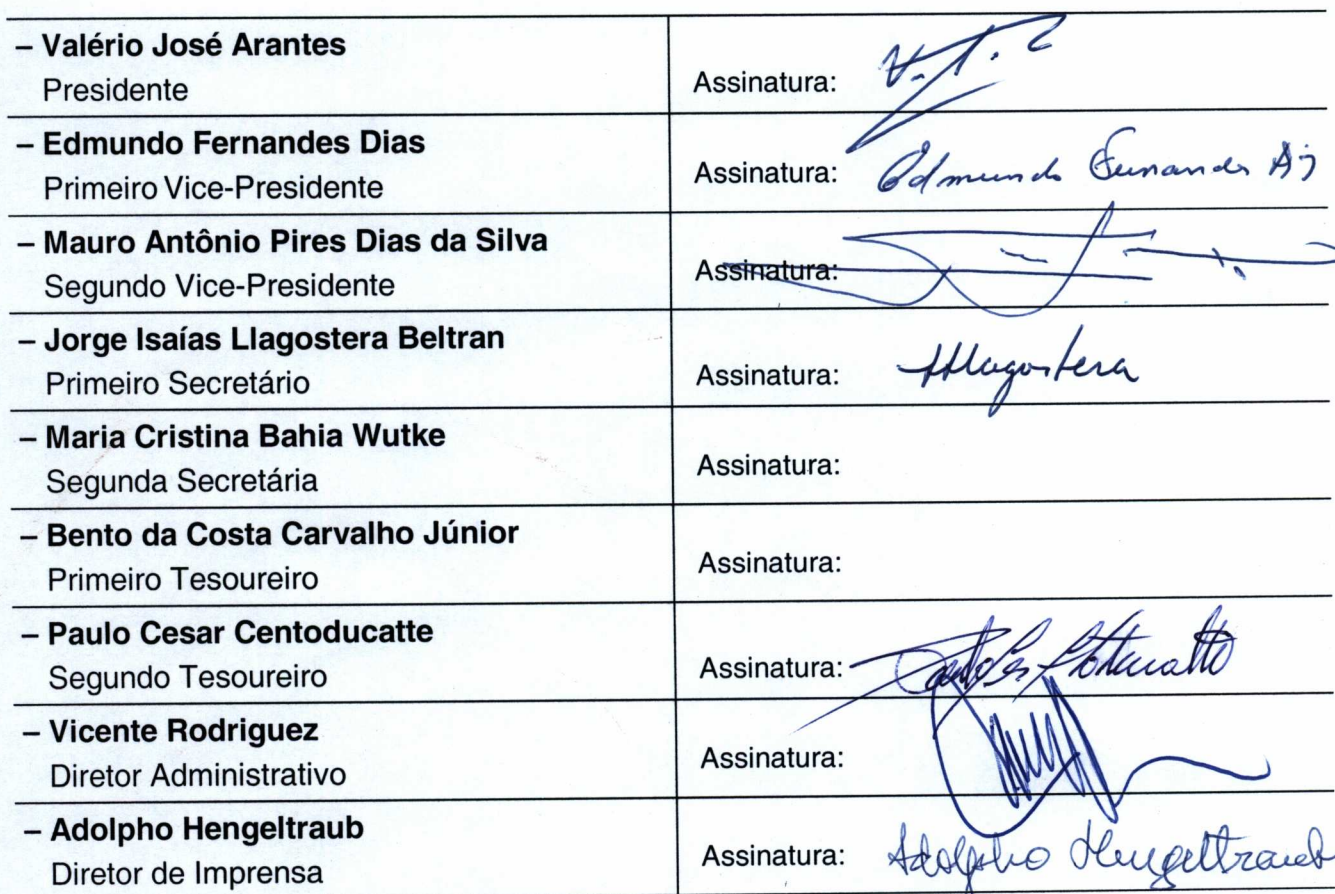 – Valério José Arantes
Presidente
Assinatura:
– Edmundo Fernandes Dias
Primeiro Vice-Presidente
Assinatura: Edmundo Fernandes Dias
– Mauro Antônio Pires Dias da Silva
Segundo Vice-Presidente
Assinatura:
– Jorge Isaías Llagostera Beltran
Primeiro Secretário
Assinatura: Llagostera
– Maria Cristina Bahia Wutke
Segunda Secretária
Assinatura:
– Bento da Costa Carvalho Júnior
Primeiro Tesoureiro
Assinatura:
– Paulo Cesar Centoducatte
Segundo Tesoureiro
Assinatura:
– Vicente Rodriguez
Diretor Administrativo
Assinatura:
– Adolpho Hengeltraub
Diretor de Imprensa
Assinatura: Adolpho Hengeltraub